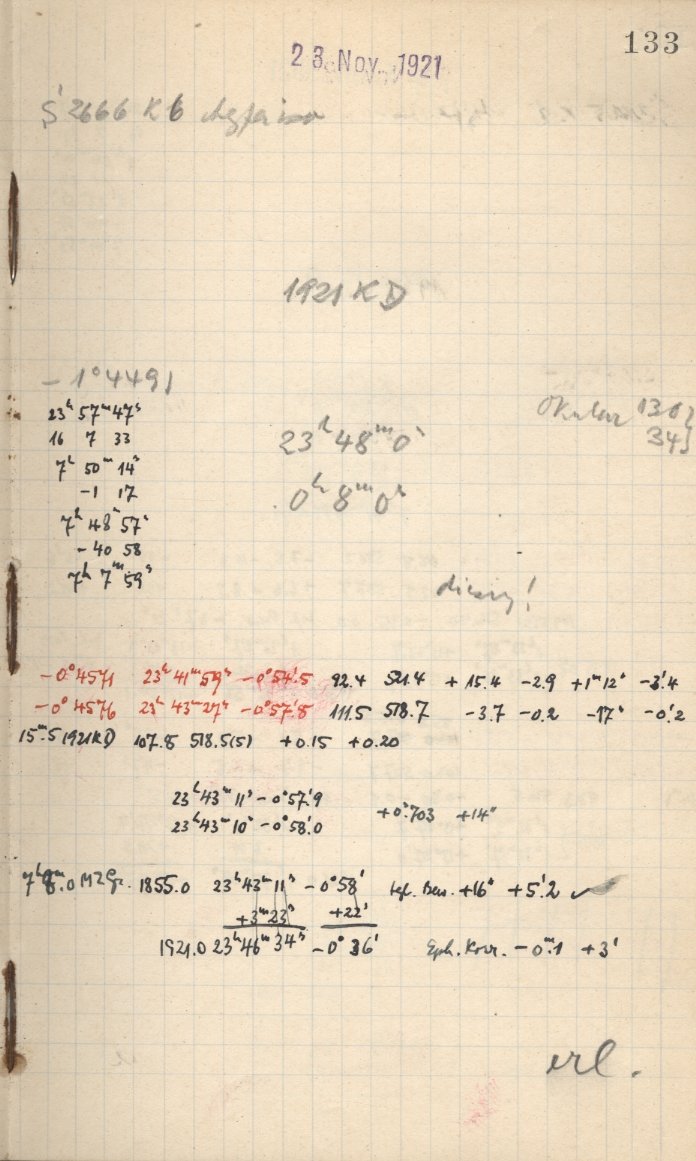 133
23. Nov. 1921
2666 K6 Agfa iso
1921 KD
-1°4491
23ʰ 57ᵐ 47ˢ
16 7 33
7ʰ 50ᵐ 14ˢ
-1 17
7ʰ 48ᵐ 57ˢ
-40 58
7ʰ 7ᵐ 59ˢ
23ʰ 48ᵐ 0ˢ
0ʰ 8ᵐ 0ˢ
Okular
345
-0°4571 23ʰ 41ᵐ 59ˢ -0°54'.5 92.4 521.4 +15.4 -2.9 +1ᵐ12ˢ -3'.4
-0°4576 23ʰ 43ᵐ 27ˢ -0°57'.8 111.5 518.7 -3.7 -0.2 -17ˢ -0'.2
15ᵐ.5 1921KD 107.8 518.5(5) +0.15 +0.20
23ʰ 43ᵐ 11ˢ -0°57'.9
23ʰ 43ᵐ 10ˢ -0°58'.0
+0ˢ.703 +14"
7ʰ 8ᵐ.0 MZGr. 1855.0 23ʰ 43ᵐ 11ˢ -0°58' tgl. Bew. +16ˢ +5'.2 ✓
+3ᵐ 23ˢ +22'
1921.0 23ʰ 46ᵐ 34ˢ -0° 36' Eph. Korr. -0ᵐ.1 +3'
erl.